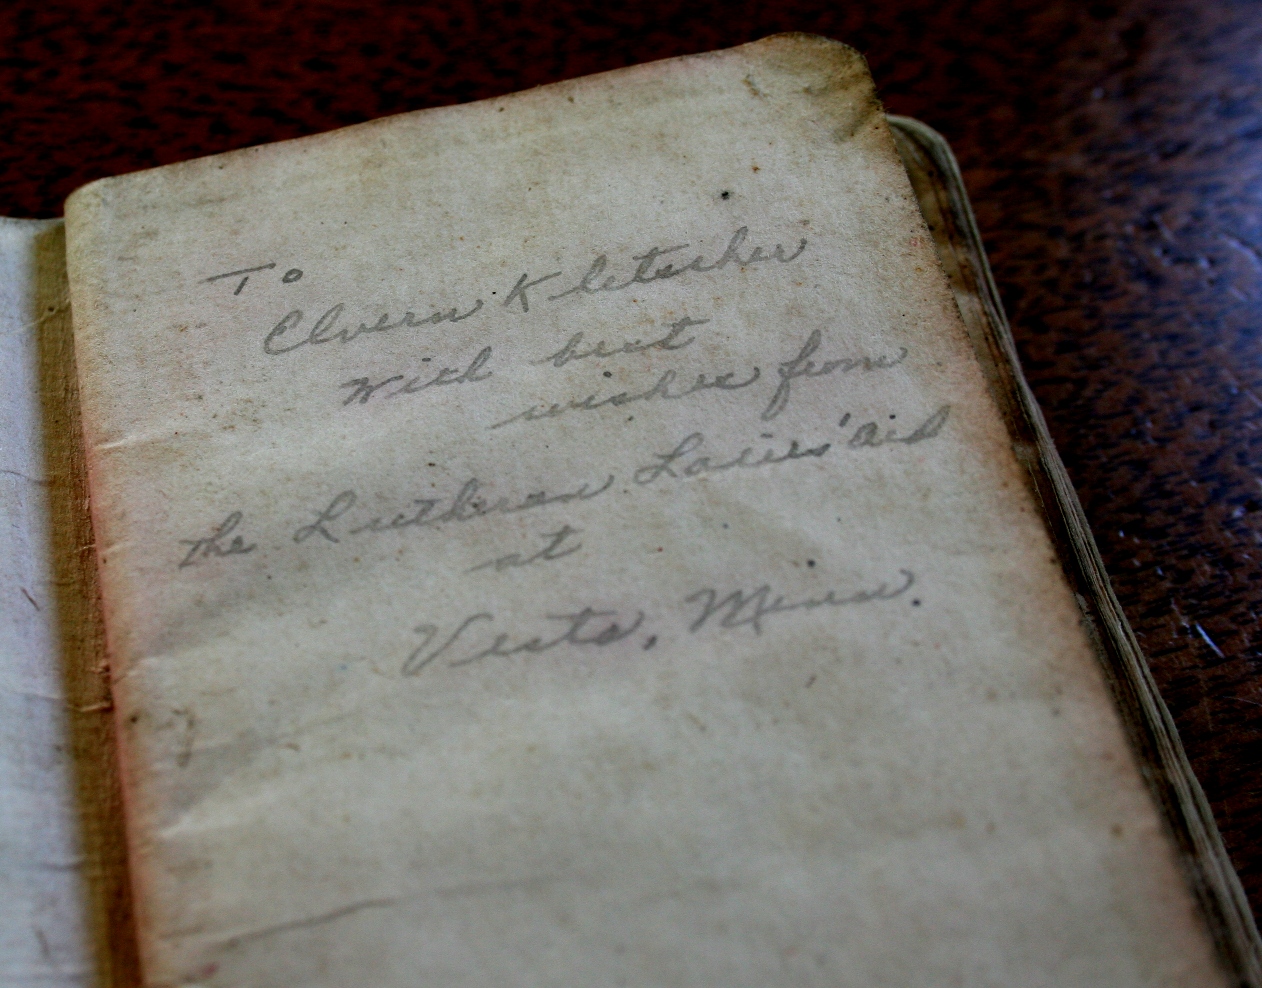 To
Elvern Kletscher
With best
wishes from
the Lutheran Ladies' Aid
at
Vesta, Minn.